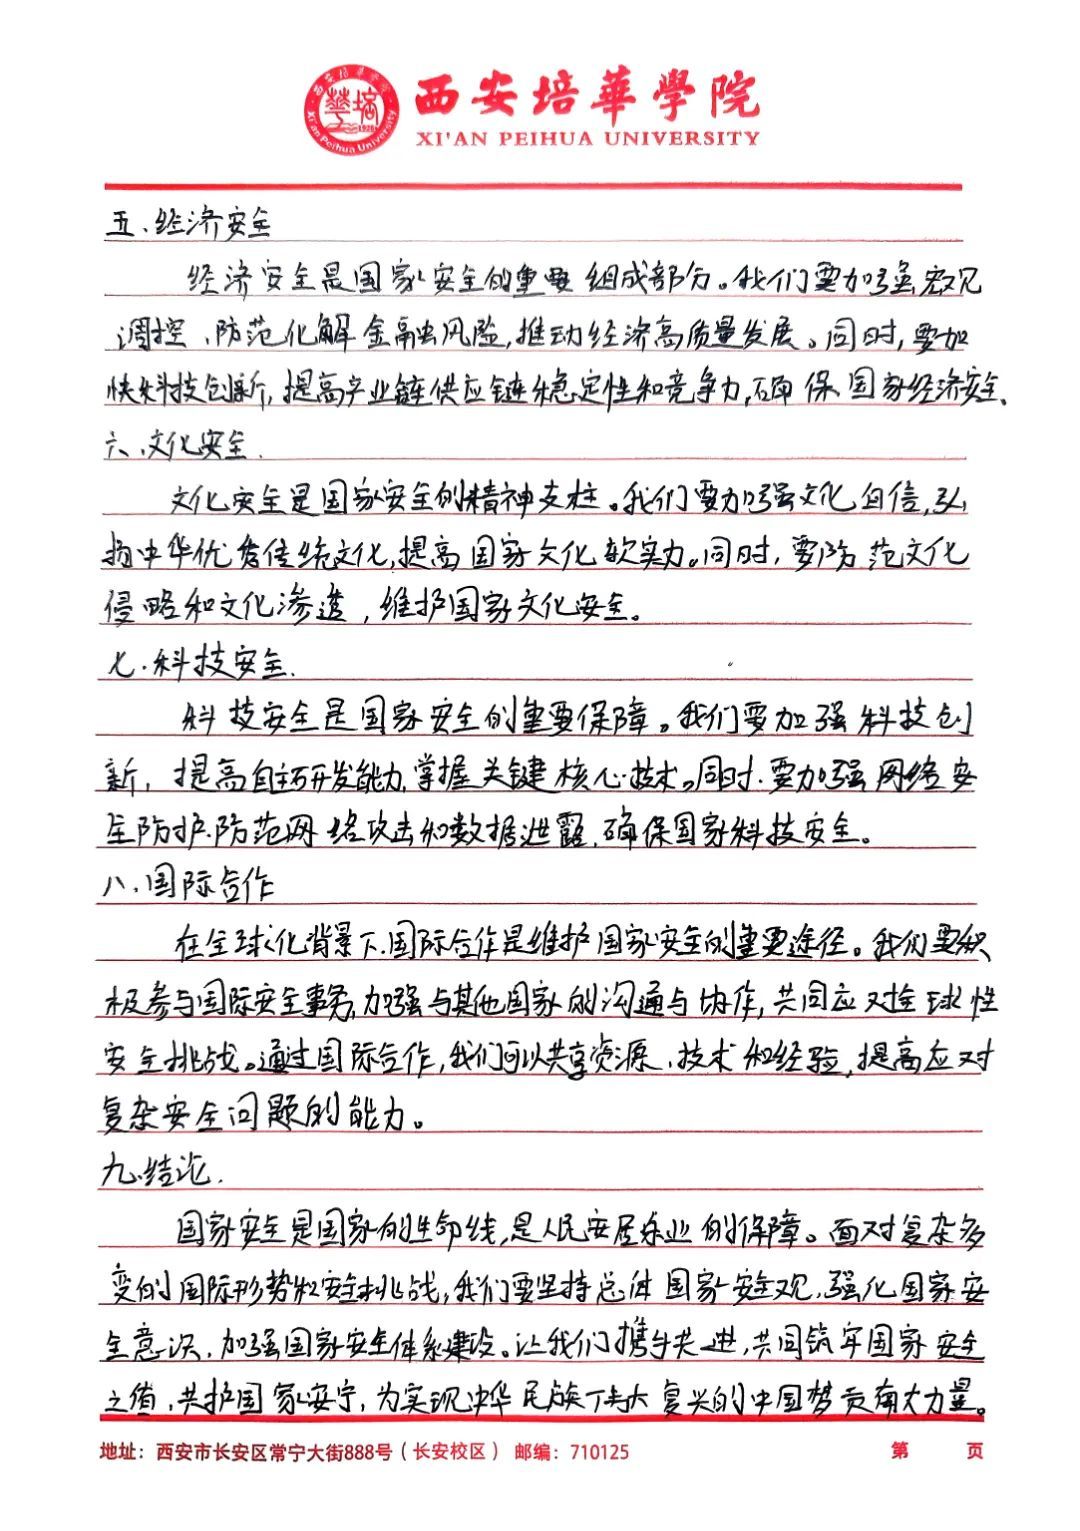 西安培華學院
XI'AN PEIHUA UNIVERSITY
五、经济安全
经济安全是国家安全的重要组成部分。我们要加强宏观
调控、防范化解金融风险,推动经济高质量发展。同时,要加
快科技创新,提高产业链供应链稳定性和竞争力,确保国家经济安全。
六、文化安全.
文化安全是国家安全的精神支柱。我们要加强文化自信,弘
扬中华优秀传统文化,提高国家文化软实力。同时,要防范文化
侵略和文化渗透,维护国家文化安全。
七.科技安全.
科技安全是国家安全的重要保障。我们要加强科技创
新,提高自主研发能力,掌握关键核心技术。同时.要加强网络安
全防护.防范网络攻击和数据泄露,确保国家科技安全。
八、国际合作
在全球化背景下.国际合作是维护国家安全的重要途径。我们要积
极参与国际安全事务,加强与其他国家的沟通与协作,共同应对全球性
安全挑战。通过国际合作,我们可以共享资源、技术和经验,提高应对
复杂安全问题的能力。
九.结论.
国家安全是国家的生命线,是人民安居乐业的保障。面对复杂多
变的国际形势和安全挑战,我们要坚持总体国家安全观,强化国家安
全意识,加强国家安全体系建设。让我们携手共进,共同筑牢国家安全
之墙,共护国家安宁,为实现中华民族伟大复兴的中国梦贡献力量。
地址：西安市长安区常宁大街888号（长安校区） 邮编：710125 第 页